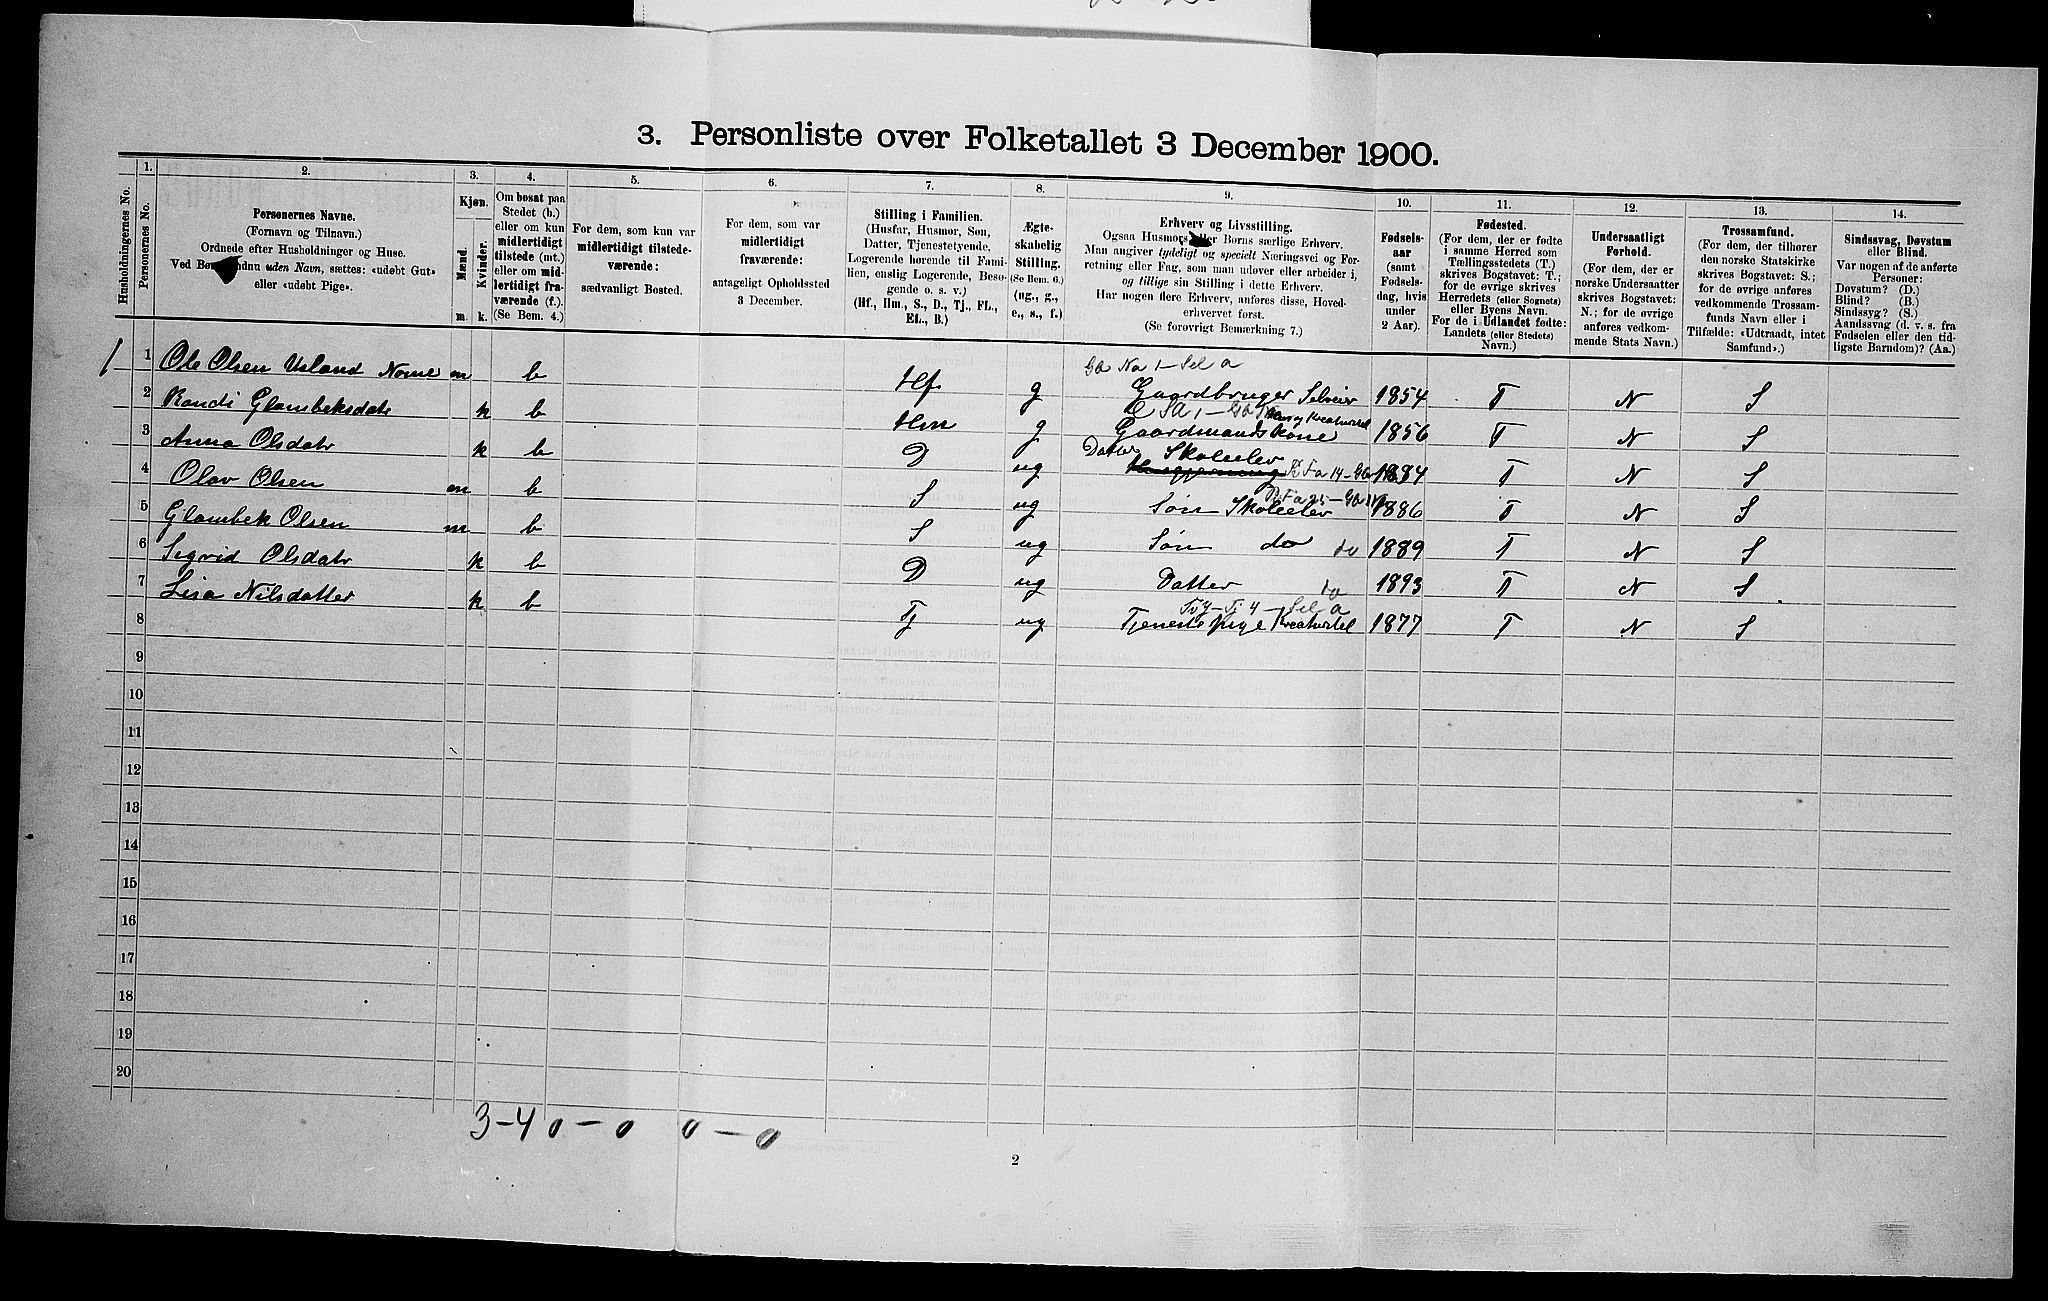 3. Personliste over Folketallet 3 December 1900.
Husholdningernes No.
1.
Personernes No.
2.
Personernes Navne.
(Fornavn og Tilnavn.)
Ordnede efter Husholdninger og Huse.
Ved Børn endnu uden Navn, sættes: «udøbt Gut»
eller «udøbt Pige».
3.
Kjøn.
Mænd.
Kvinder.
m. k.
4.
Om bosat paa
Stedet (b.)
eller om kun
midlertidigt
tilstede (mt.)
eller om mid-
lertidigt fra-
værende (f.).
(Se Bem. 4.)
5.
For dem, som kun var
midlertidigt tilstede-
værende:
sædvanligt Bosted.
6.
For dem, som var
midlertidigt
fraværende:
antageligt Opholdssted
3 December.
7.
Stilling i Familien.
(Husfar, Husmor, Søn,
Datter, Tjenestetyende,
Logerende hørende til Fami-
lien, enslig Logerende, Besø-
gende o. s. v.)
(Hf., Hm., S., D., Tj., FL.,
EL., B.)
8.
Ægte-
skabelig
Stilling.
(Se Bem. 6.)
(ug., g.,
e., s., f.)
9.
Erhverv og Livsstilling.
Ogsaa Husmors eller Børns særlige Erhverv.
Man angiver tydeligt og specielt Næringsvei og For-
retning eller Fag, som man udøver eller arbeider i,
og tillige sin Stilling i dette Erhverv.
Har nogen flere Erhverv, anføres disse, Hoved-
erhvervet først.
(Se forøvrigt Bemærkning 7.)
10.
Fødsels-
aar
(samt
Fødsels-
dag, hvis
under
2 Aar).
11.
Fødested.
(For dem, der er fødte
i samme Herred som
Tællingsstedets (T.)
skrives Bogstavet: T.;
for de øvrige skrives
Herredets (eller Sognets)
eller Byens Navn.
For de i Udlandet fødte:
Landets (eller Stedets)
Navn.)
12.
Undersaatligt
Forhold.
(For dem, der er
norske Undersaatter
skrives Bogstavet:
N.; for de øvrige
anføres vedkom-
mende Stats Navn.)
13.
Trossamfund.
(For dem, der tilhører
den norske Statskirke
skrives Bogstavet: S.;
for de øvrige anføres
vedkommende Trossam-
funds Navn eller i
Tilfælde: «Udtraadt, intet
Samfund».)
14.
Sindssvag, Døvstum
eller Blind.
Var nogen af de anførte
Personer:
Døvstum? (D.)
Blind? (B.)
Sindssyg? (S.)
Aandssvag (d. v. s. fra
Fødselen eller den tid-
ligste Barndom)? (Aa.)
1 1 Ole Olsen Usland Nome m b Hf g Gaardbruger Selveier 1854 T N S
2 Kondi Glambeksdatr k b Hm g Gaardmandskone 1856 T N S
3 Anna Olsdatr k b D ug Datter Skoleelev 1884 T N S
4 Olav Olsen m b S ug Søn Skoleelev 1886 T N S
5 Glambek Olsen m b S ug Søn do do 1889 T N S
6 Sigrid Olsdatr k b D ug Datter do 1893 T N S
7 Lisa Nilsdatter k b Tj ug Tjenestepige Kreaturstel 1877 T N S
8
9
10
11
12
13
14
15
16
17
18
19
20
3-4 0-0 0-0
2